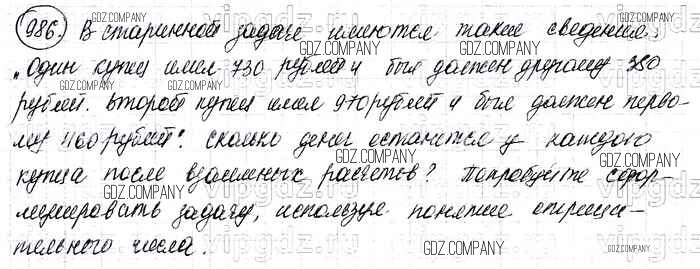 986. В старинной задаче имеются такие сведения:
„Один купец имел 730 рублей и был должен другому 380
рублей. Второй купец имел 970 рублей и был должен перво-
му 460 рублей". Сколько денег останется у каждого
купца после взаимных расчетов? Попробуйте сфор-
мулировать задачу, используя понятие отрица-
тельного числа.
GDZ.COMPANY
GDZ.COMPANY
GDZ.COMPANY
GDZ.COMPANY
GDZ.COMPANY
GDZ.COMPANY
GDZ.COMPANY
GDZ.COMPANY
GDZ.COMPANY
vipgdz.ru
vipgdz.ru